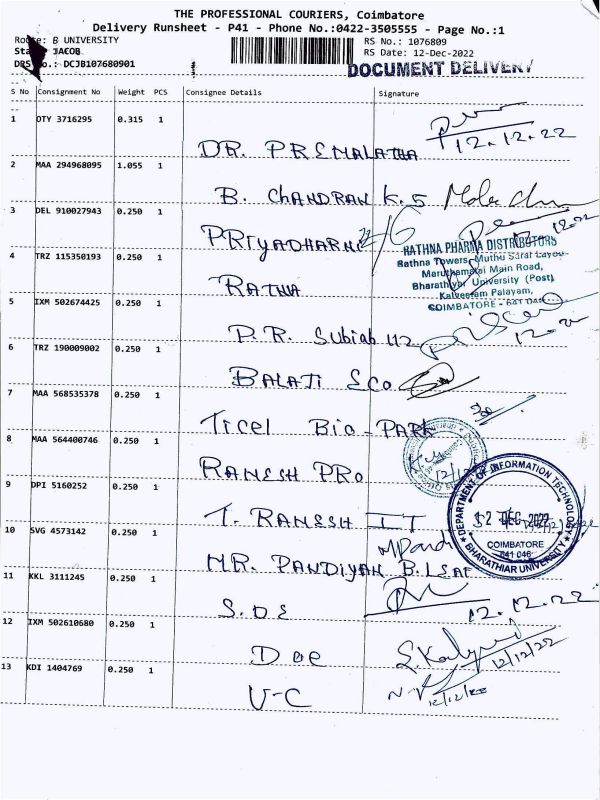 THE PROFESSIONAL COURIERS, Coimbatore
Delivery Runsheet - P41 - Phone No.:0422-3505555 - Page No.:1
Route: B UNIVERSITY
RS No.: 1076809
JACOB
RS Date: 12-Dec-2022
DRS No.: DCJB107680901
DOCUMENT DELIVERY
S No Consignment No Weight PCS Consignee Details Signature
1 OTY 3716295 0.315 1
DR. PREMALATHA 12.12.22
2 MAA 294968095 1.055 1
B. CHANDRAN K.S
3 DEL 910027943 0.250 1
PRIYADHARNI
RATHNA PHARMA DISTRIBUTORS
4 TRZ 115350193 0.250 1
Rathna Towers, Muthu Layou
Main Road,
Bharathiyar University (Post)
RATHA
Kalveeram Palayam,
5 IXM 502674425 0.250 1
COIMBATORE - 641 046
P.R. Subiah
6 TRZ 190009002 0.250 1
BALAJI &CO
7 MAA 568535378 0.250 1
Ticel Bio-PARK
8 MAA 564400746 0.250 1
RAMESH PRO
9 DPI 5160252 0.250 1
DEPARTMENT OF INFORMATION TECHNOLOGY
12 DEC 2022
T. RAMESH IT
10 SVG 4573142 0.250 1
COIMBATORE
641 046
BHARATHIAR UNIVERSITY
MR. PANDIYAN
11 KKL 3111245 0.250 1
S.DE 12.12.22
12 IXM 502610680 0.250 1
Doe 12/12/22
13 KDI 1404769 0.250 1
V-C 12/12/22